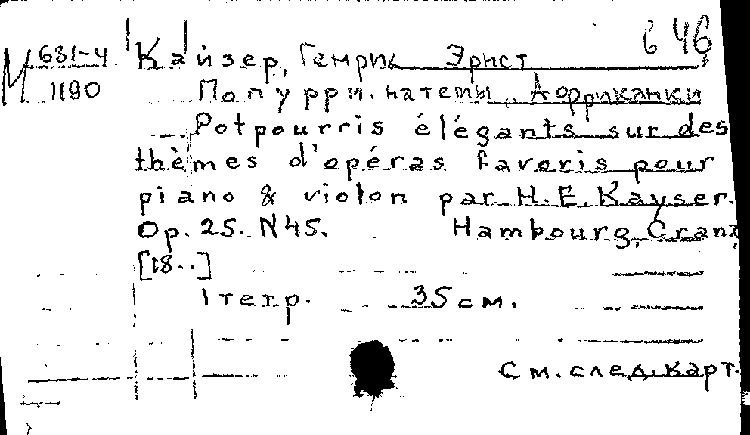 М 631-4 Кайзер, Генрих Эрнст б 46
1190 Попурри. на темы "Африканки
Potpourris élégants sur des
thèmes d'opéras favoris pour
piano & violon par H.E. Kayser.
Op. 25. N45. Hambourg, Cranz,
[18..]
1 тетр. 35 см.
См. след. карт.